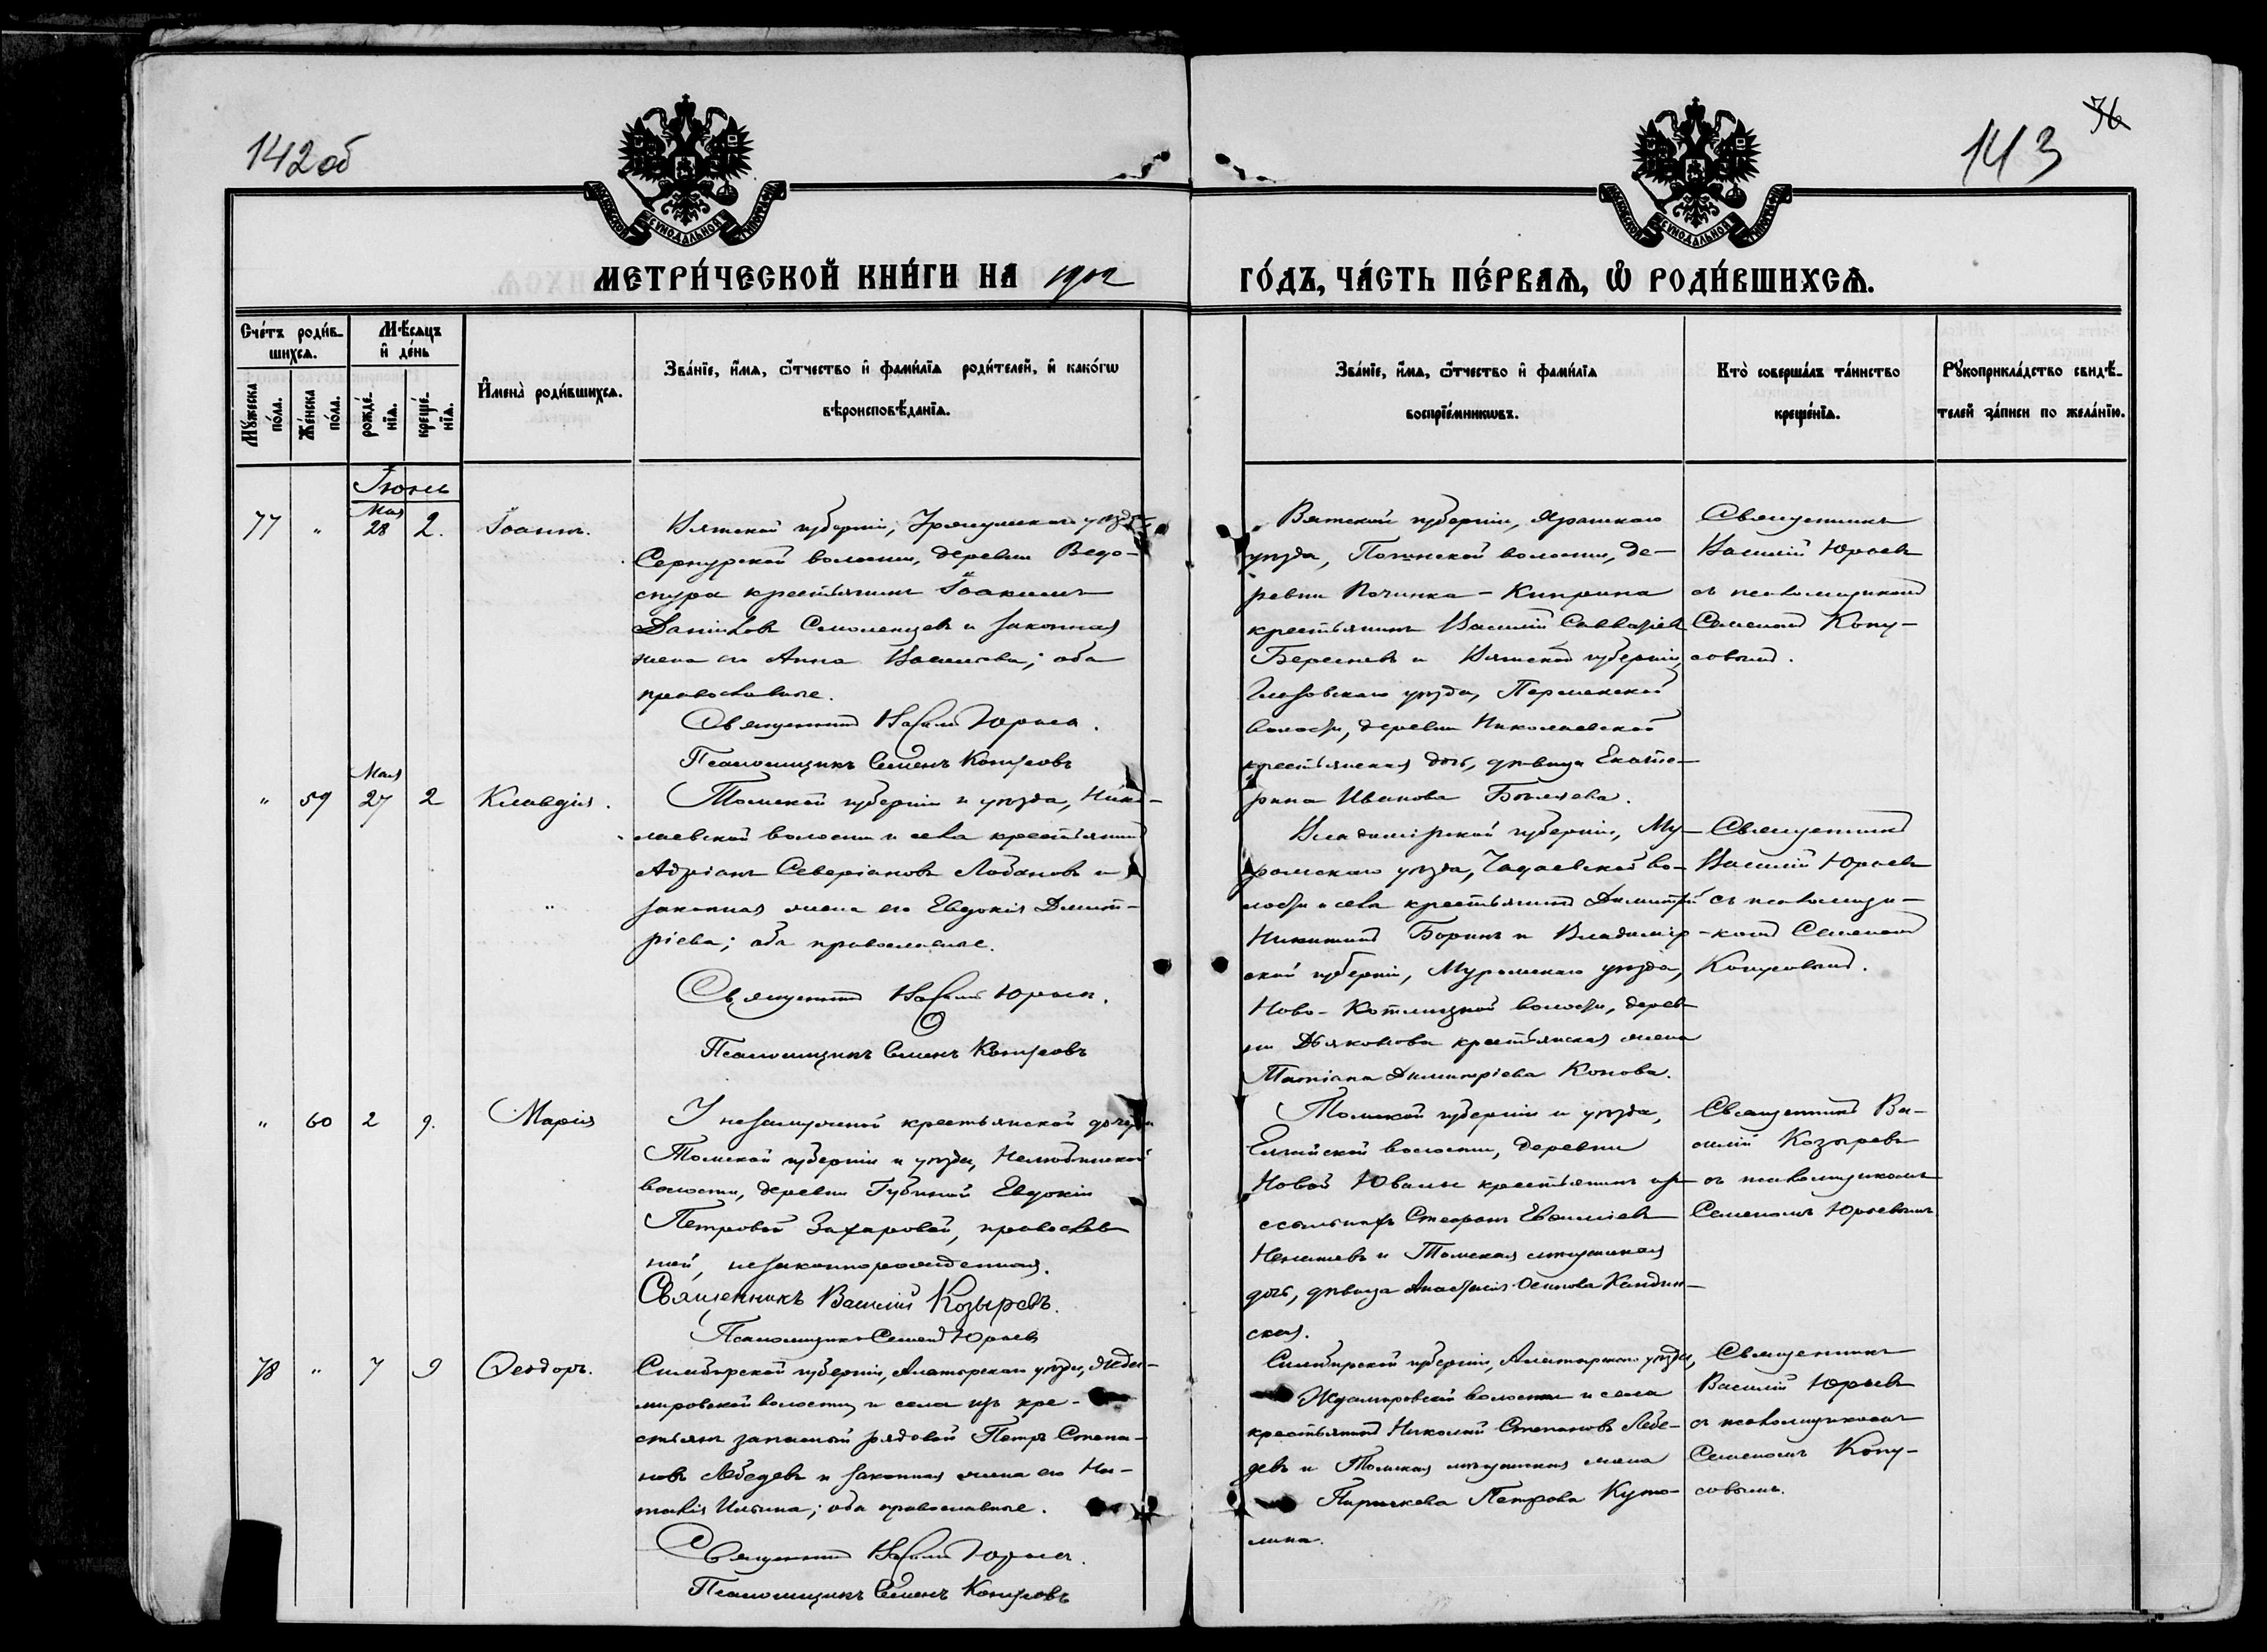 142 об
143
36
МЕТРИ́ЧЕСКОЙ КНИ́ГИ НА 1912
ГО́ДЪ, ЧА́СТЬ ПЕ́РВАѦ, Ѡ҆ РОДИ́ВШИХСѦ.
Сче́тъ роди́в-
шихсѧ.
Мѣ́сѧцъ
и҆ де́нь
Мꙋ́жеска
по́ла.
Же́нска
по́ла.
рожде́-
нїѧ.
креще́-
нїѧ.
И҆мена̀ роди́вшихсѧ.
Зва́нїе, и҆́мѧ, ѻ҆́тчество и҆ фами́лїѧ роди́телей, и҆ како́гѡ
вѣроисповѣ́данїѧ.
Зва́нїе, и҆́мѧ, ѻ҆́тчество и҆ фами́лїѧ
воспрїе́мникѡвъ.
Кто̀ соверша́лъ та́инство
креще́нїѧ.
Рꙋкоприкла́дство свидѣ́-
телей за́писи по жела́нїю.
Іюнь
77 " Мая 28 2. Іоаннъ.
Вятской губерніи, Уржумскаго уѣзда
Сернурской волости, деревни
крестьянинъ Іоакимъ
Даніиловъ Смоленцевъ и законная
жена его Анна Васильева; оба
православные.
Священникъ Василій Юрьевъ.
Псаломщикъ Семенъ Копусовъ
Вятской губерніи, Яранскаго
уѣзда, волости, де-
ревни Починка-Киприна
крестьянинъ Василій Савватіев
Береснев и Вятской губерніи,
Глазовскаго уѣзда,
волости, деревни Николаевской
крестьянская дочь, дѣвица Екате-
рина Иванова
Священникъ
Василій Юрьевъ
съ псаломщикомъ
Семеномъ Копу-
совымъ.
" 59 Мая 27 2 Клавдія.
Томской губерніи и уѣзда, Нико-
лаевской волости и села крестьянинъ
Адріанъ Северіановъ Лобановъ и
законная жена его Евдокія Димит-
ріева; оба православные.
Священникъ Василій Юрьевъ.
Псаломщикъ Семенъ Копусовъ
Владимірской губерніи, Му-
ромскаго уѣзда, Чаадаевской во-
лости и села крестьянинъ Димитрій
Никитинъ Боринъ и Владимір-
ской губерніи, Муромскаго уѣзда,
Ново-Котлицкой волости, дерев-
ни Дьяконова крестьянская жена
Татіана Димитріева Конова.
Священникъ
Василій Юрьевъ
съ псаломщи-
комъ Семеномъ
Копусовымъ.
" 60 2 9. Марія
У незамужней крестьянской дочери
Томской губерніи и уѣзда, Нелюбинской
волости, деревни Губиной Евдокіи
Петровой Захаровой, православ
ной, незаконнорожденная.
Священникъ Василій Козыревъ.
Псаломщикъ Семенъ Юрьевъ
Томской губерніи и уѣзда,
Елгайской волости, деревни
Новой Ювалы крестьянинъ из
ссыльныхъ Стефанъ
и Томская мѣщанская
дочь, дѣвица Анастасія Осипова Кандин-
ская.
Священникъ Ва-
силій Козыревъ
съ псаломщикомъ
Семеномъ Юрьевымъ
78 " 7 9 Ѳеодоръ.
Симбирской губерніи, Алатырскаго уѣзда, Жда-
мировской волости и села изъ кре-
стьянъ запасный рядовой Петръ Степа-
новъ Лебедевъ и законная жена его На-
талія Ильина; оба православные.
Священникъ Василій Юрьевъ.
Псаломщикъ Семенъ Копусовъ
Симбирской губерніи, Алатырскаго уѣзда,
Ждамировской волости и села
крестьянинъ Николай Степановъ Лебе-
девъ и Томская мѣщанская жена
Петрова
Священникъ
Василій Юрьевъ
съ псаломщикомъ
Семеномъ Копу-
совымъ.